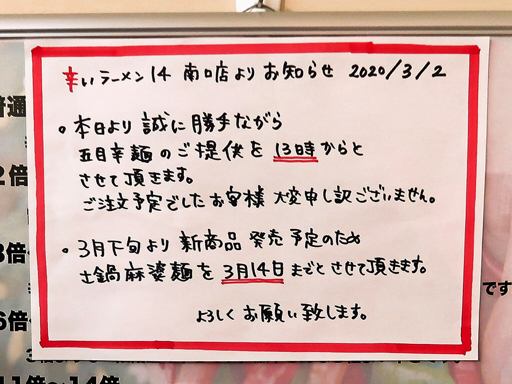 辛いラーメン14 南口店よりお知らせ 2020/3/2
。本日より誠に勝手ながら
五目辛麺のご提供を 13時からと
させて頂きます。
ご注文予定でしたお客様 大変申し訳ございません。
。3月下旬より 新商品 発売予定のため
土鍋麻婆麺を 3月14日までとさせて頂きます。
よろしくお願い致します。
普通
2倍
3倍
です
6倍
11倍~14倍